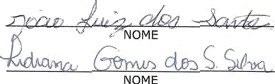 João Luiz dos Santos
NOME
Lidiana Gomes dos S. Silva
NOME